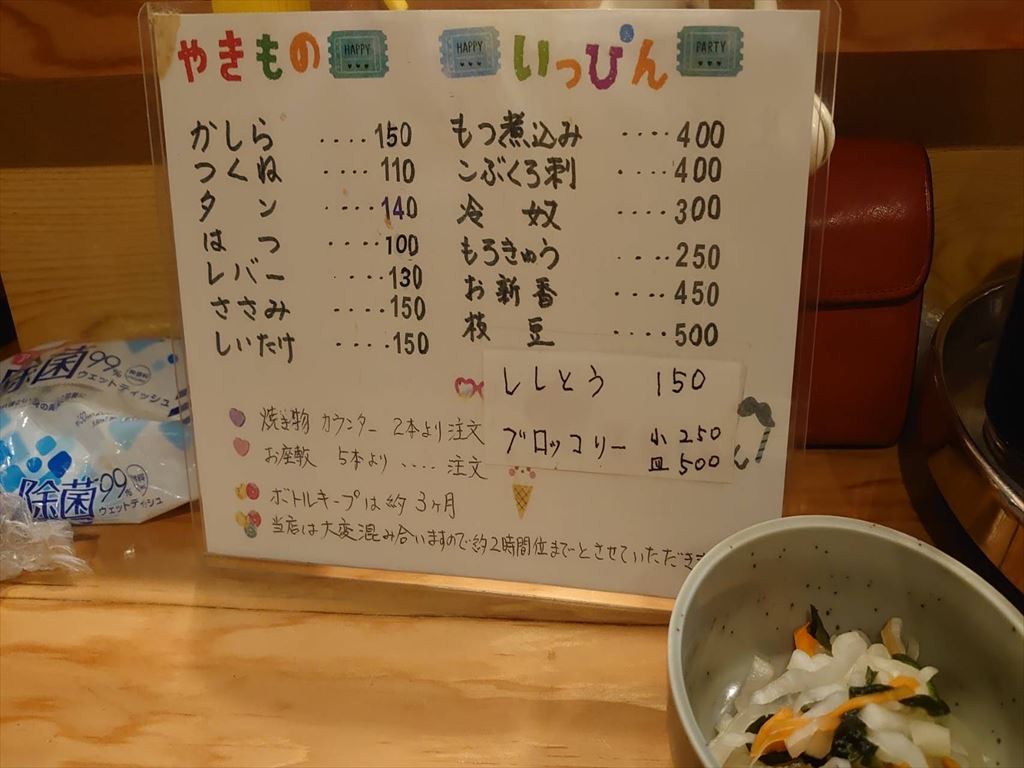 やきもの HAPPY
かしら ････ 150
つくね ････ 110
タン ････ 140
はつ ････ 100
レバー ････ 130
ささみ ････ 150
しいたけ ････ 150
HAPPY いっぴん PARTY
もつ煮込み ････ 400
こぶくろ刺 ････ 400
冷奴 ････ 300
もろきゅう ････ 250
お新番 ････ 450
枝豆 ････ 500
ししとう 150
ブロッコリー 小 250
皿 500
焼き物 カウンター 2本より注文
お座敷 5本より ････ 注文
ボトルキープは約3ヶ月
当店は大変混み合いますので約2時間位までとさせていただきま
除菌99%
ウェットティッシュ
除菌99%
ウェットティッシュ